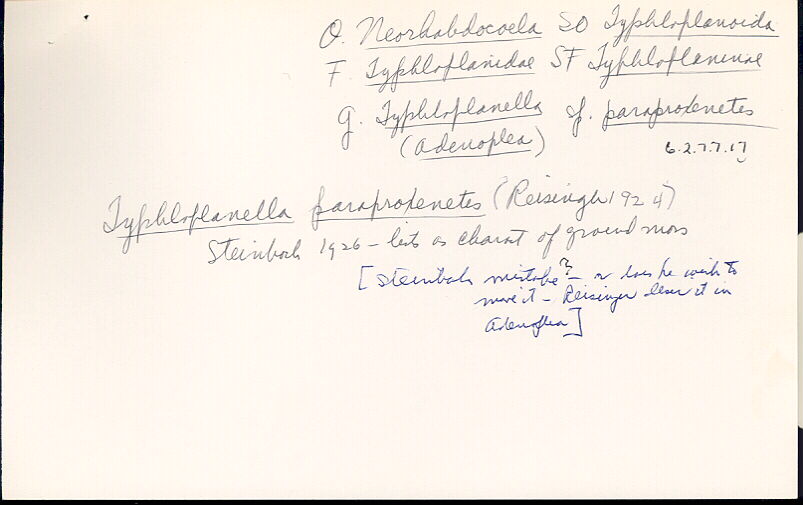 O. Neorhabdocoela SO Typhloplanoida
F. Typhloplanidae SF Typhloplaninae
g. Typhloplanella sp. paraproxenetes
(Adenoplea)
6.2.7.7.17
Typhloplanella paraproxenetes (Reisinger 1924)
Steinböck 1926 - lists as charact of ground moss
[Steinböck mistake? - or does he wish to
move it - Reisinger descr it in
Adenoplea]